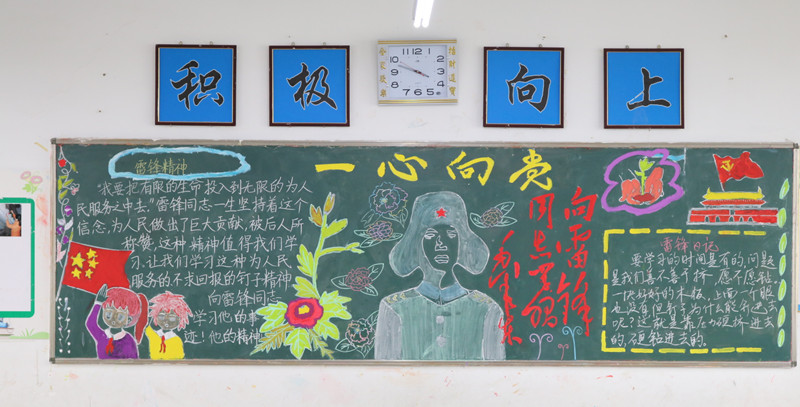 积极向上
11 12 1
10 2
9 3
8 4
7 6 5
雷锋精神
"我要把有限的生命投入到无限的为人
民服务之中去,"雷锋同志一生坚持着这个
信念,为人民做出了巨大贡献,被后人所
称赞,这种精神值得我们学
习.让我们学习这种为人民
服务的不求回报的钉子精神
向雷锋同志
学习他的事
迹!他的精神!
一心向党
向雷锋
同志学习
毛泽东
雷锋日记
要学习的时间是有的,问题
是我们善不善于挤,愿不愿钻.
一块好好的木板,上面一个眼
也没有,但钉子为什么能钉进去
呢?这就是靠压力硬挤进去
的,硬钻进去的.